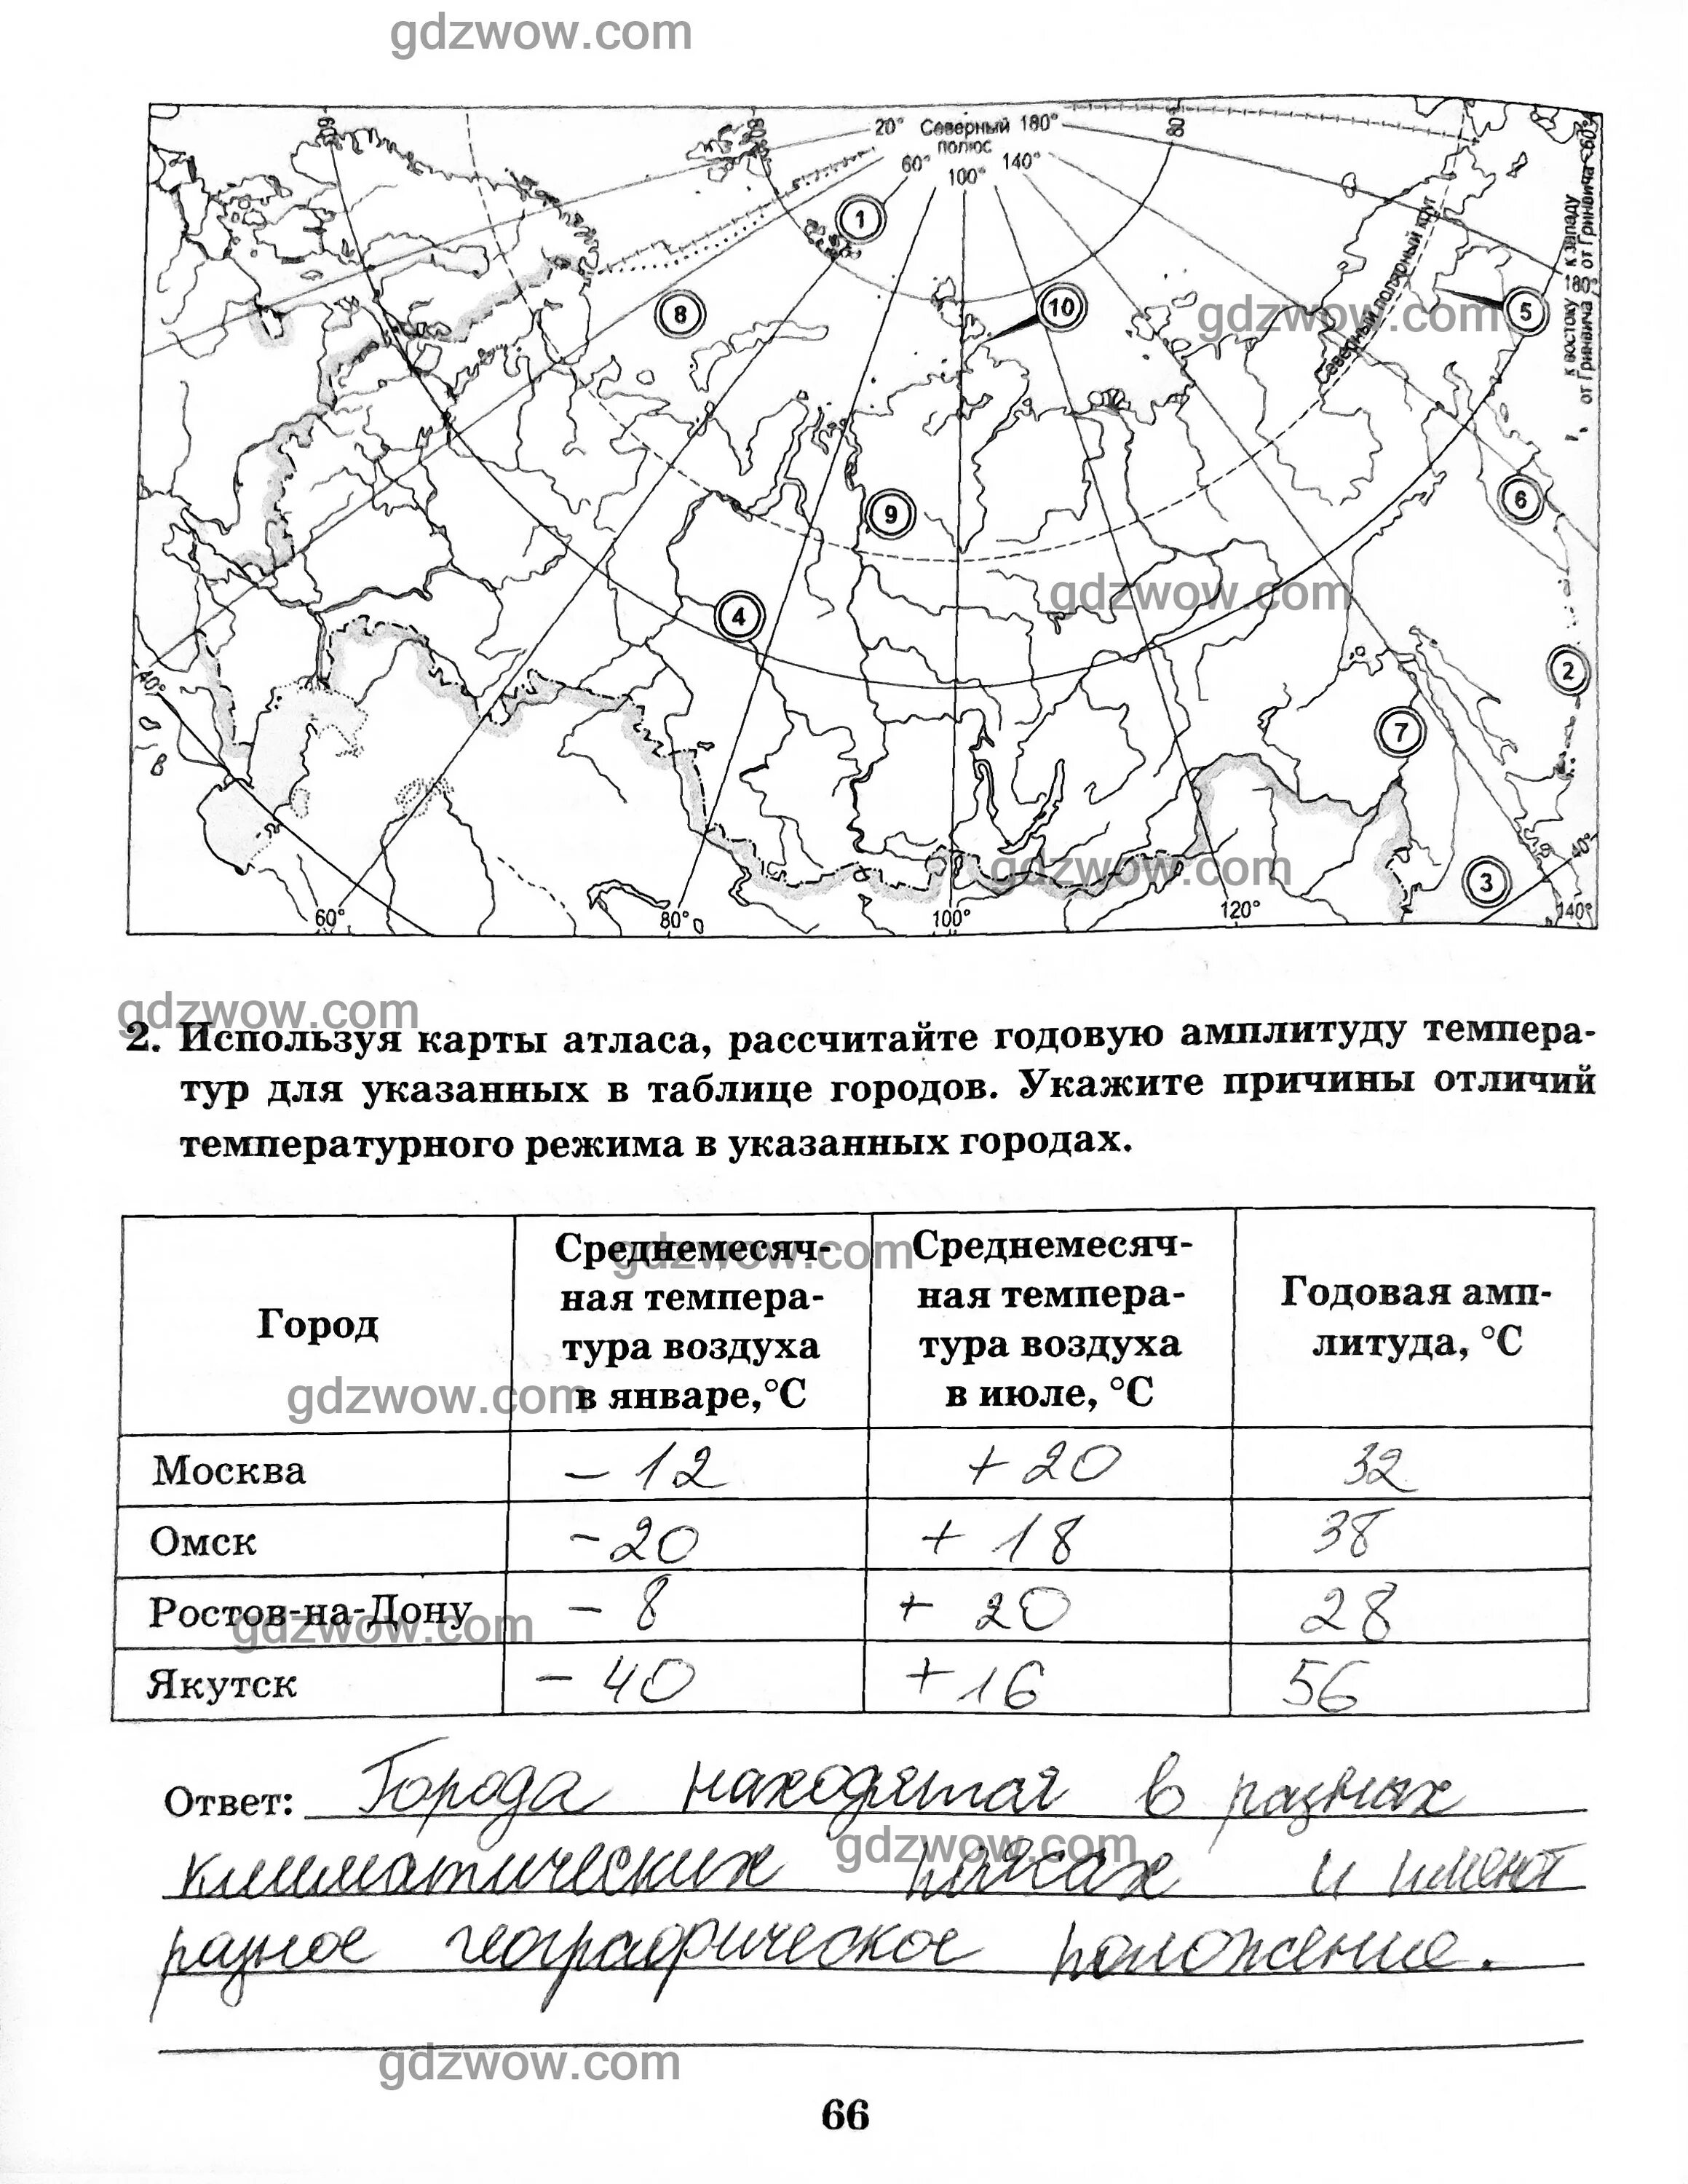 gdzwow.com
60
80
20° Северный 180°
80
полюс
60° 140°
100°
1
8
10
gdzwow.com
5
Северный полярный круг
к востоку к западу
от Гринвича 180° от Гринвича 160°
9
6
4
gdzwow.com
40°
2
7
gdzwow.com
40°
3
60°
80°
100°
120°
140°
gdzwow.com
2. Используя карты атласа, рассчитайте годовую амплитуду темпера-
тур для указанных в таблице городов. Укажите причины отличий
температурного режима в указанных городах.
Город
Среднемесяч-
ная темпера-
тура воздуха
в январе,°С
Среднемесяч-
ная темпера-
тура воздуха
в июле, °С
Годовая амп-
литуда, °С
gdzwow.com
gdzwow.com
Москва - 12 + 20 32
Омск - 20 + 18 38
Ростов-на-Дону - 8 + 20 28
gdzwow.com
Якутск - 40 + 16 56
Ответ: Города находятся в разных
gdzwow.com
климатических поясах и имеют
разное географическое положение.
gdzwow.com
66